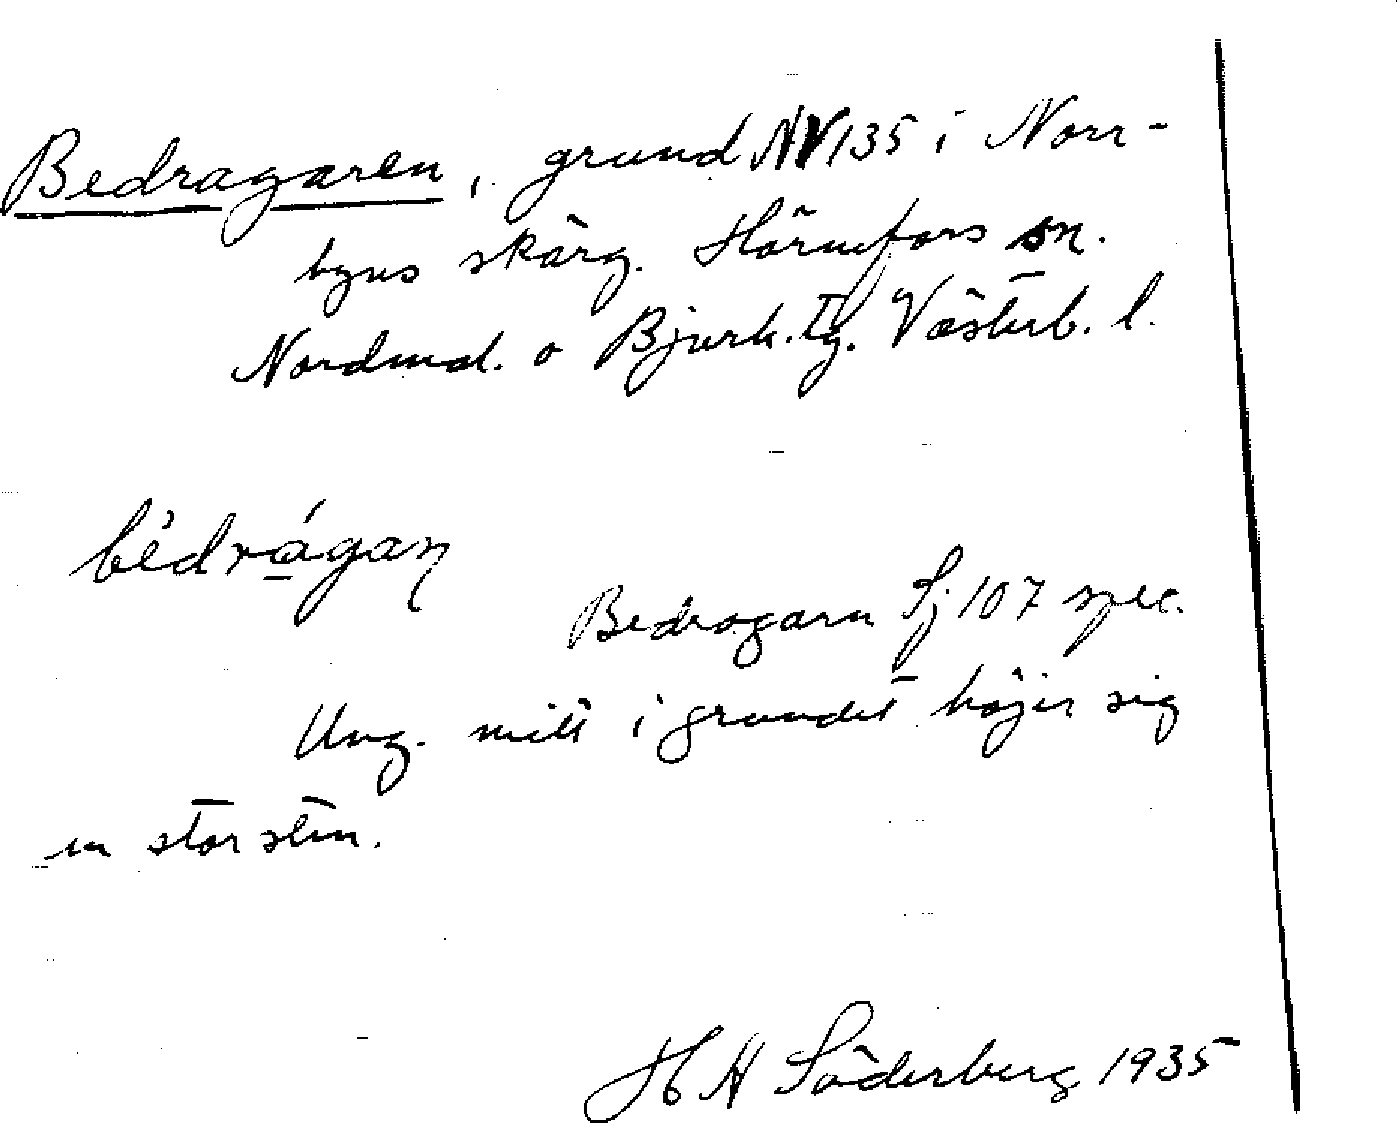 Bedragaren, grund NV 135 i Norr-
byns skärg. Hörnefors sn.
Nordmal. o Bjurh. tg. Västerb. l.
bèdrágaɳ
Bedragarn Sj 107 spec.
Ung. mitt i grundet höjer sig
en stor sten.
H H Söderberg 1935